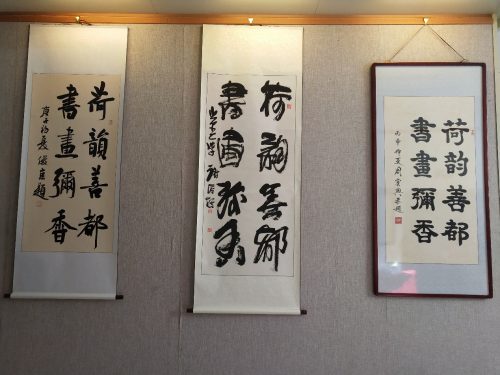 荷韻善都
書畫彌香
庚子初夏
荷韻善都
書畫彌香
荷韵善都
書畫彌香
丙申仲夏周